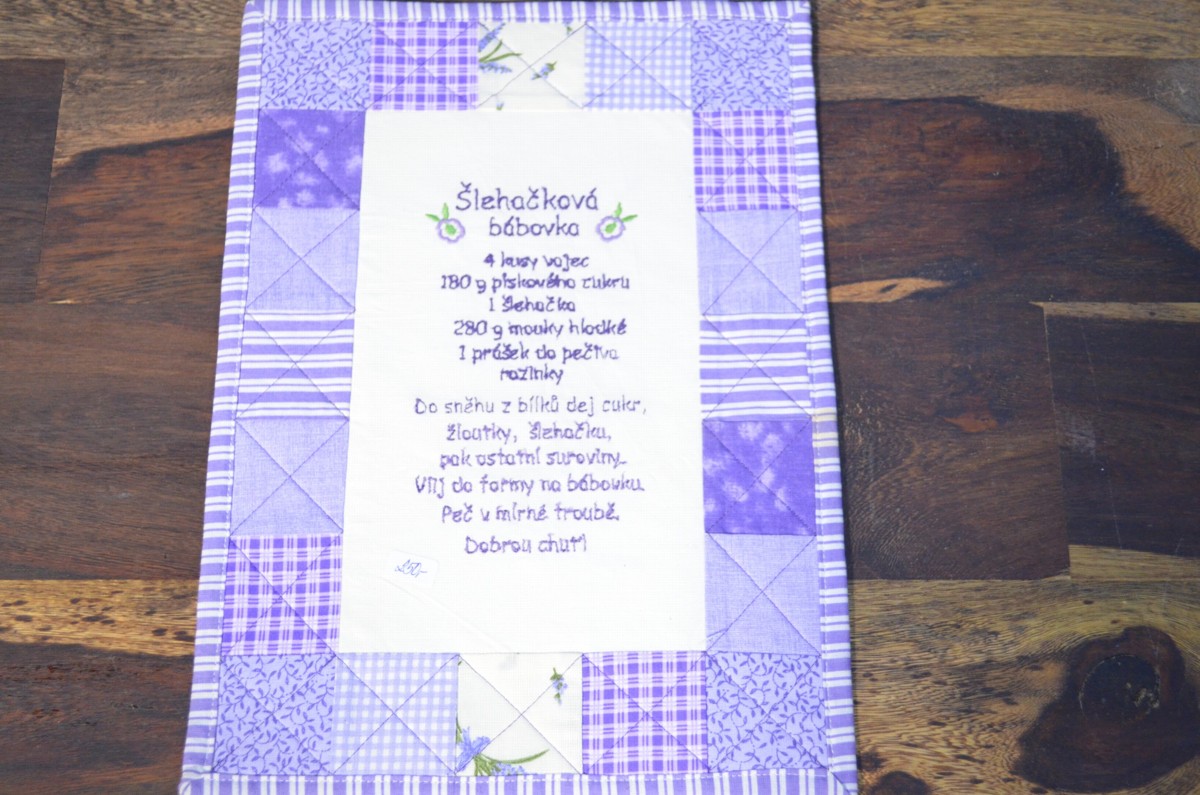 Šlehačková
bábovka
4 kusy vojec
180 g pískového cukru
1 šlehačka
280 g mouky hladké
1 prášek do pečiva
rozinky
Do sněhu z bílků dej cukr,
žloutky, šlehačku,
pak ostatní suroviny.
Vlij do formy na bábovku.
Peč v mírné troubě.
Dobrou chuť!
250,-